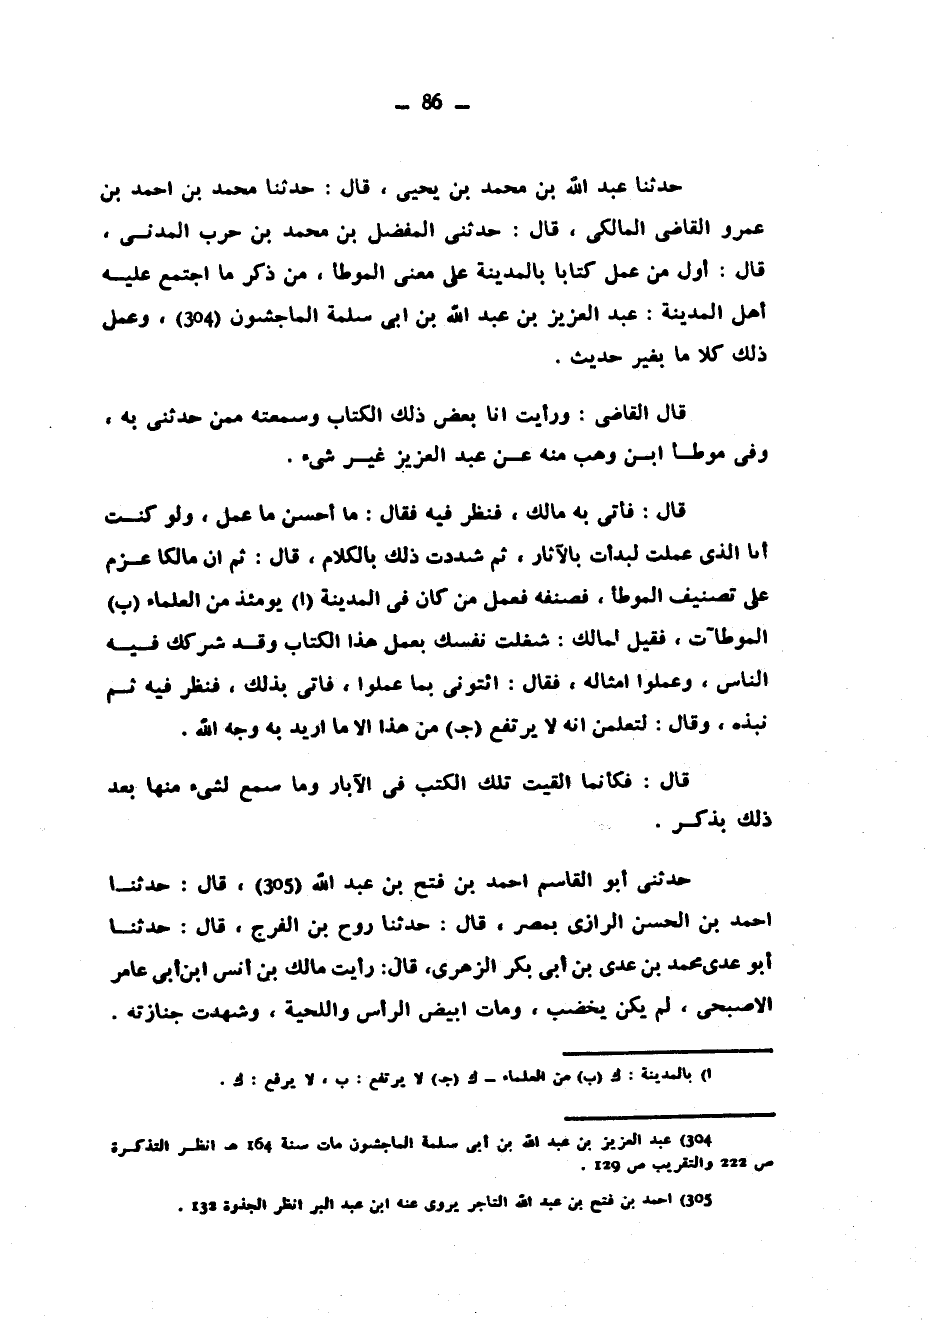 ـ 86 ـ
حدثنا عبد الله بن محمد بن يحيى ، قال : حدثنا محمد بن احمد بن
عمرو القاضى المالكى ، قال : حدثنى المفضل بن محمد بن حرب المدنـــى ،
قال : أول من عمل كتابا بالمدينة على معنى الموطا ، من ذكر ما اجتمع عليـــه
أهل المدينة : عبد العزيز بن عبد الله بن ابى سلمة الماجشون (304) ، وعمل
ذلك كلا ما بغير حديث .
قال القاضى : ورأيت انا بعض ذلك الكتاب وسمعته ممن حدثنى به ،
وفى موطــا ابــن وهب منه عــن عبد العزيز غيــر شىء .
قال : فاتى به مالك ، فنظر فيه فقال : ما أحسن ما عمل ، ولو كنــت
أنا الذى عملت لبدأت بالآثار ، ثم شددت ذلك بالكلام ، قال : ثم ان مالكا عــزم
على تصنيف الموطأ ، فصنفه فعمل من كان فى المدينة (ا) يومئذ من العلماء (ب)
الموطآت ، فقيل لمالك : شغلت نفسك بعمل هذا الكتاب وقــد شركك فيـــه
الناس ، وعملوا امثاله ، فقال : ائتونى بما عملوا ، فاتى بذلك ، فنظر فيه ثــم
نبذه ، وقال : لتعلمن انه لا يرتفع (جـ) من هذا الا ما اريد به وجه الله .
قال : فكأنما القيت تلك الكتب فى الآبار وما سمع لشىء منها بعد
ذلك بذكــر .
حدثنى أبو القاسم احمد بن فتح بن عبد الله (305) ، قال : حدثنــا
احمد بن الحسن الرازى بمصر ، قال : حدثنا روح بن الفرج ، قال : حدثنــا
أبو عدى محمد بن عدى بن أبى بكر الزهرى، قال: رأيت مالك بن أنس ابن أبى عامر
الاصبحى ، لم يكن يخضب ، ومات ابيض الرأس واللحية ، وشهدت جنازته .
ا) بالمدينة : ك (ب) من العلماء ـ ك (جـ) لا يرتفع : ب ، لا يرفع : ك .
304) عبد العزيز بن عبد الله بن أبى سلمة الماجشون مات سنة 164 هـ انظــر التذكــرة
ص 222 والتقريب ص 129 .
305) احمد بن فتح بن عبد الله التاجر يروى عنه ابن عبد البر انظر الجذوة 132 .